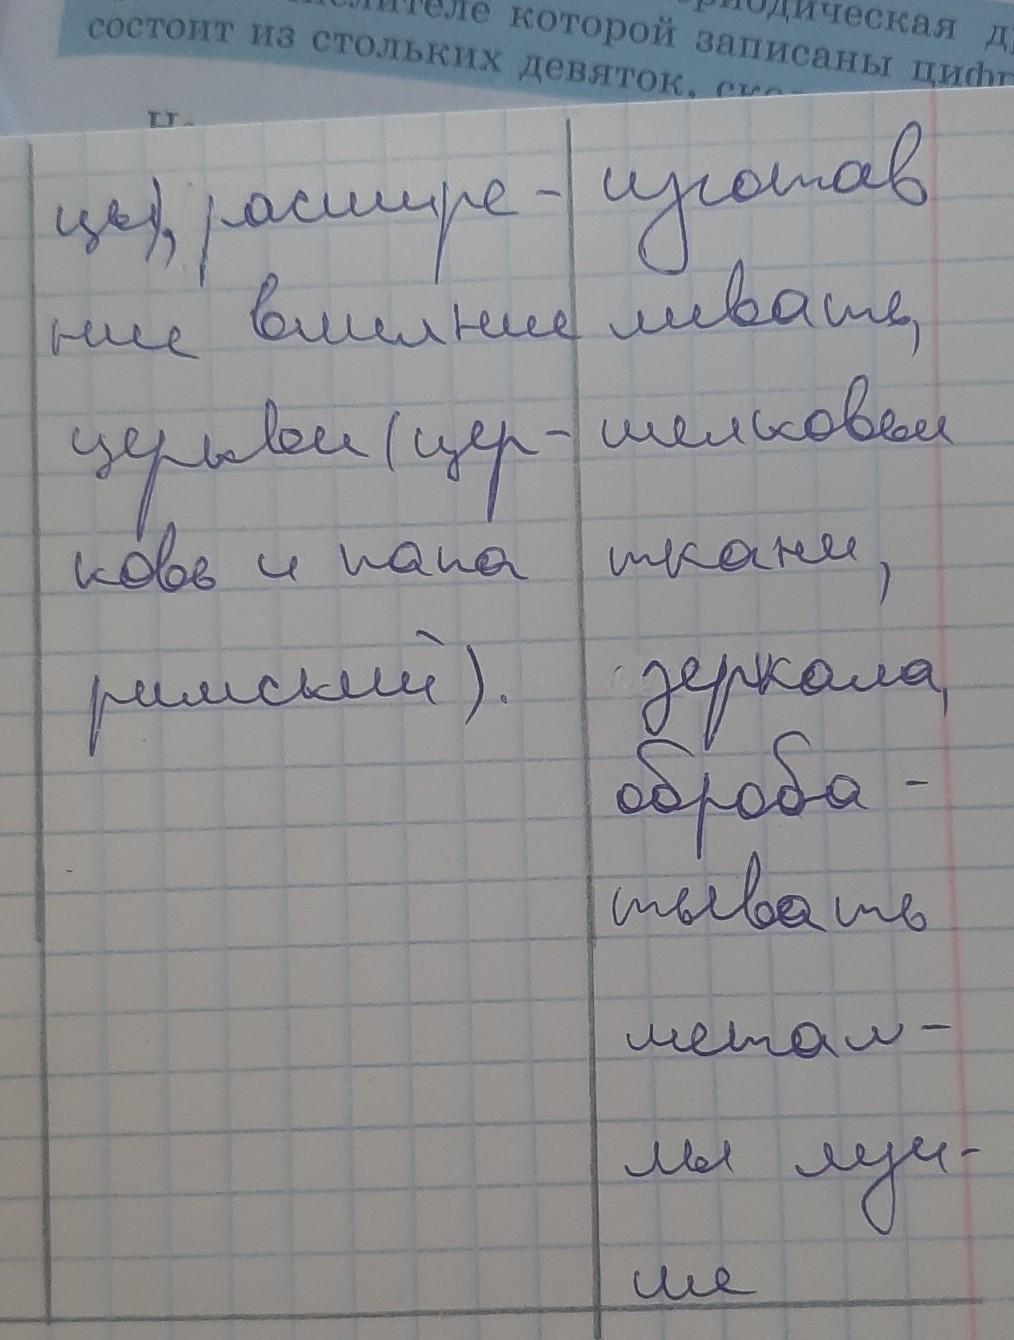 которой записаны
состоит из стольких девяток,
цы), расшире-
ние влияние
церкви (цер-
ковь и папа
римский).
изготав
ливать,
шелковые
ткани,
зеркала,
оброба-
тывать
метал-
лы луч-
ше